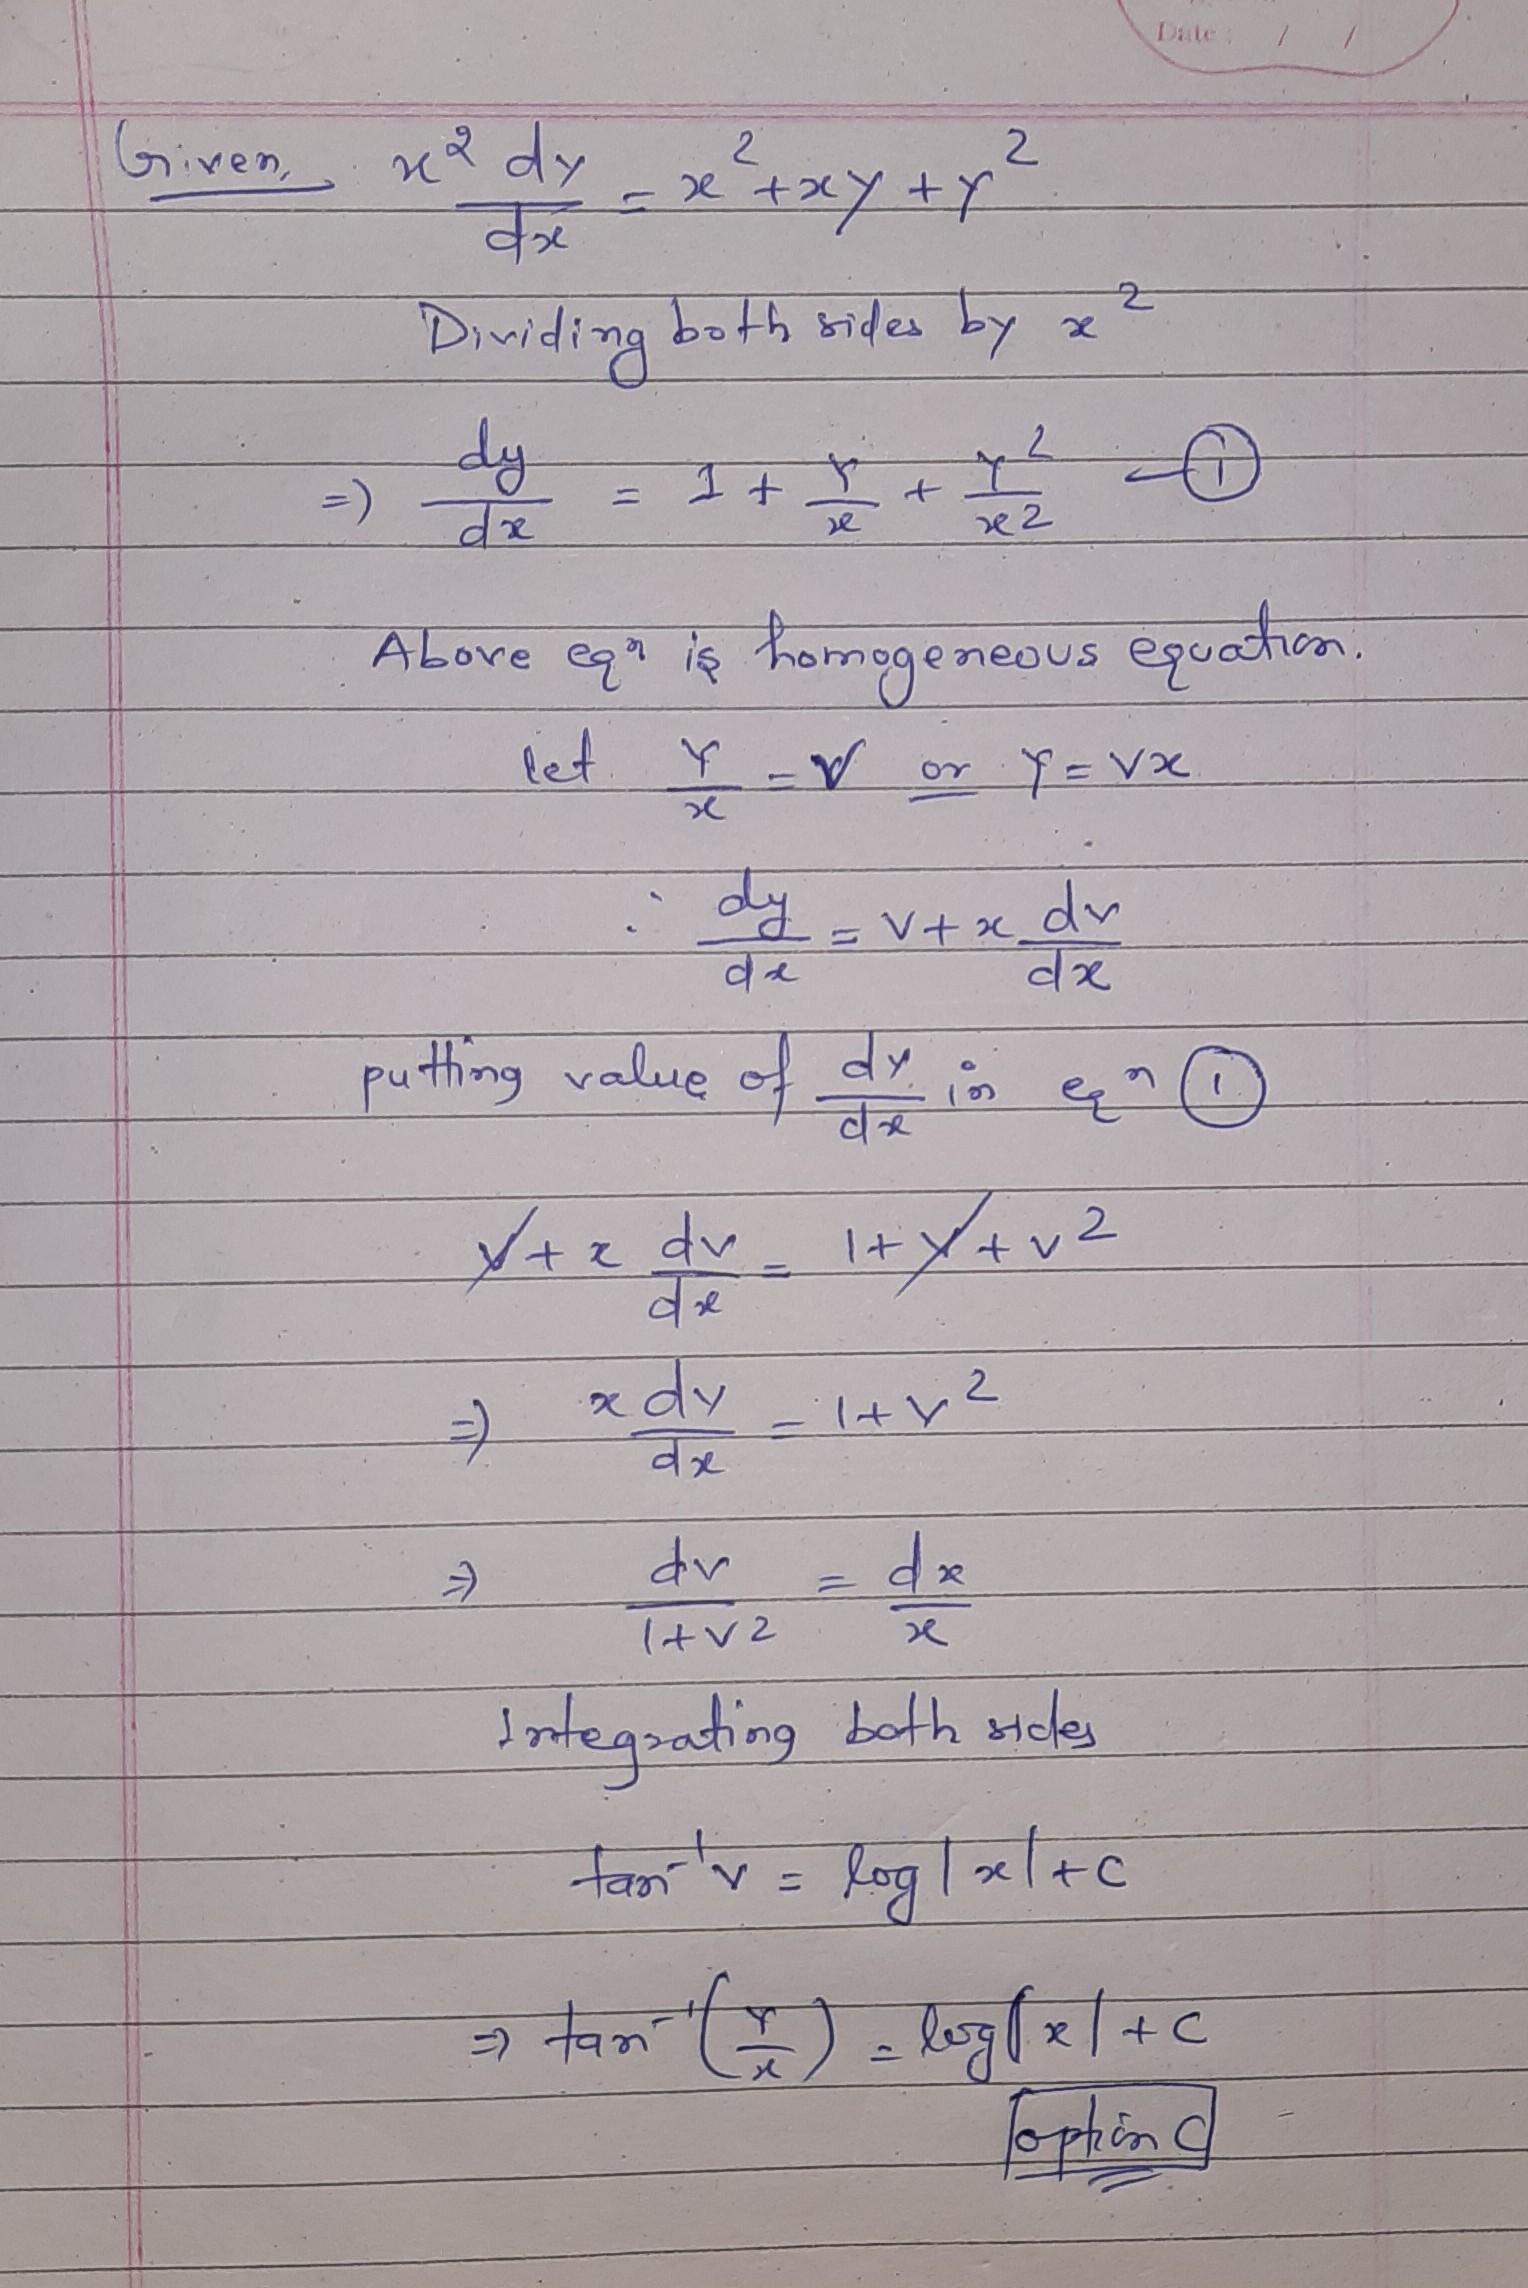 Date : / /
Given, x² dy/dx = x² + xy + y²
Dividing both sides by x²
=) dy/dx = 1 + y/x + y²/x2 — ①
Above eqⁿ is homogeneous equation.
let y/x = v or y = vx
∴ dy/dx = v + x dv/dx
putting value of dy/dx in eqⁿ ①
v + x dv/dx = 1 + v + v²
=) x dv/dx = 1 + v²
⇒ dv/1+v2 = dx/x
Integrating both sides
tan⁻¹v = log|x| + c
⇒ tan⁻¹(y/x) = log|x| + c
option C